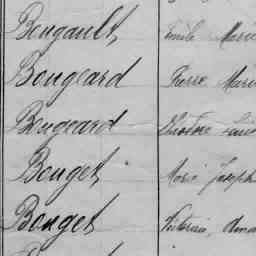 Bougault Emile Marie
Bougeard Pierre Marie
Bougeard Théodore Louis
Bouget Marie Joseph
Bouget Victorine